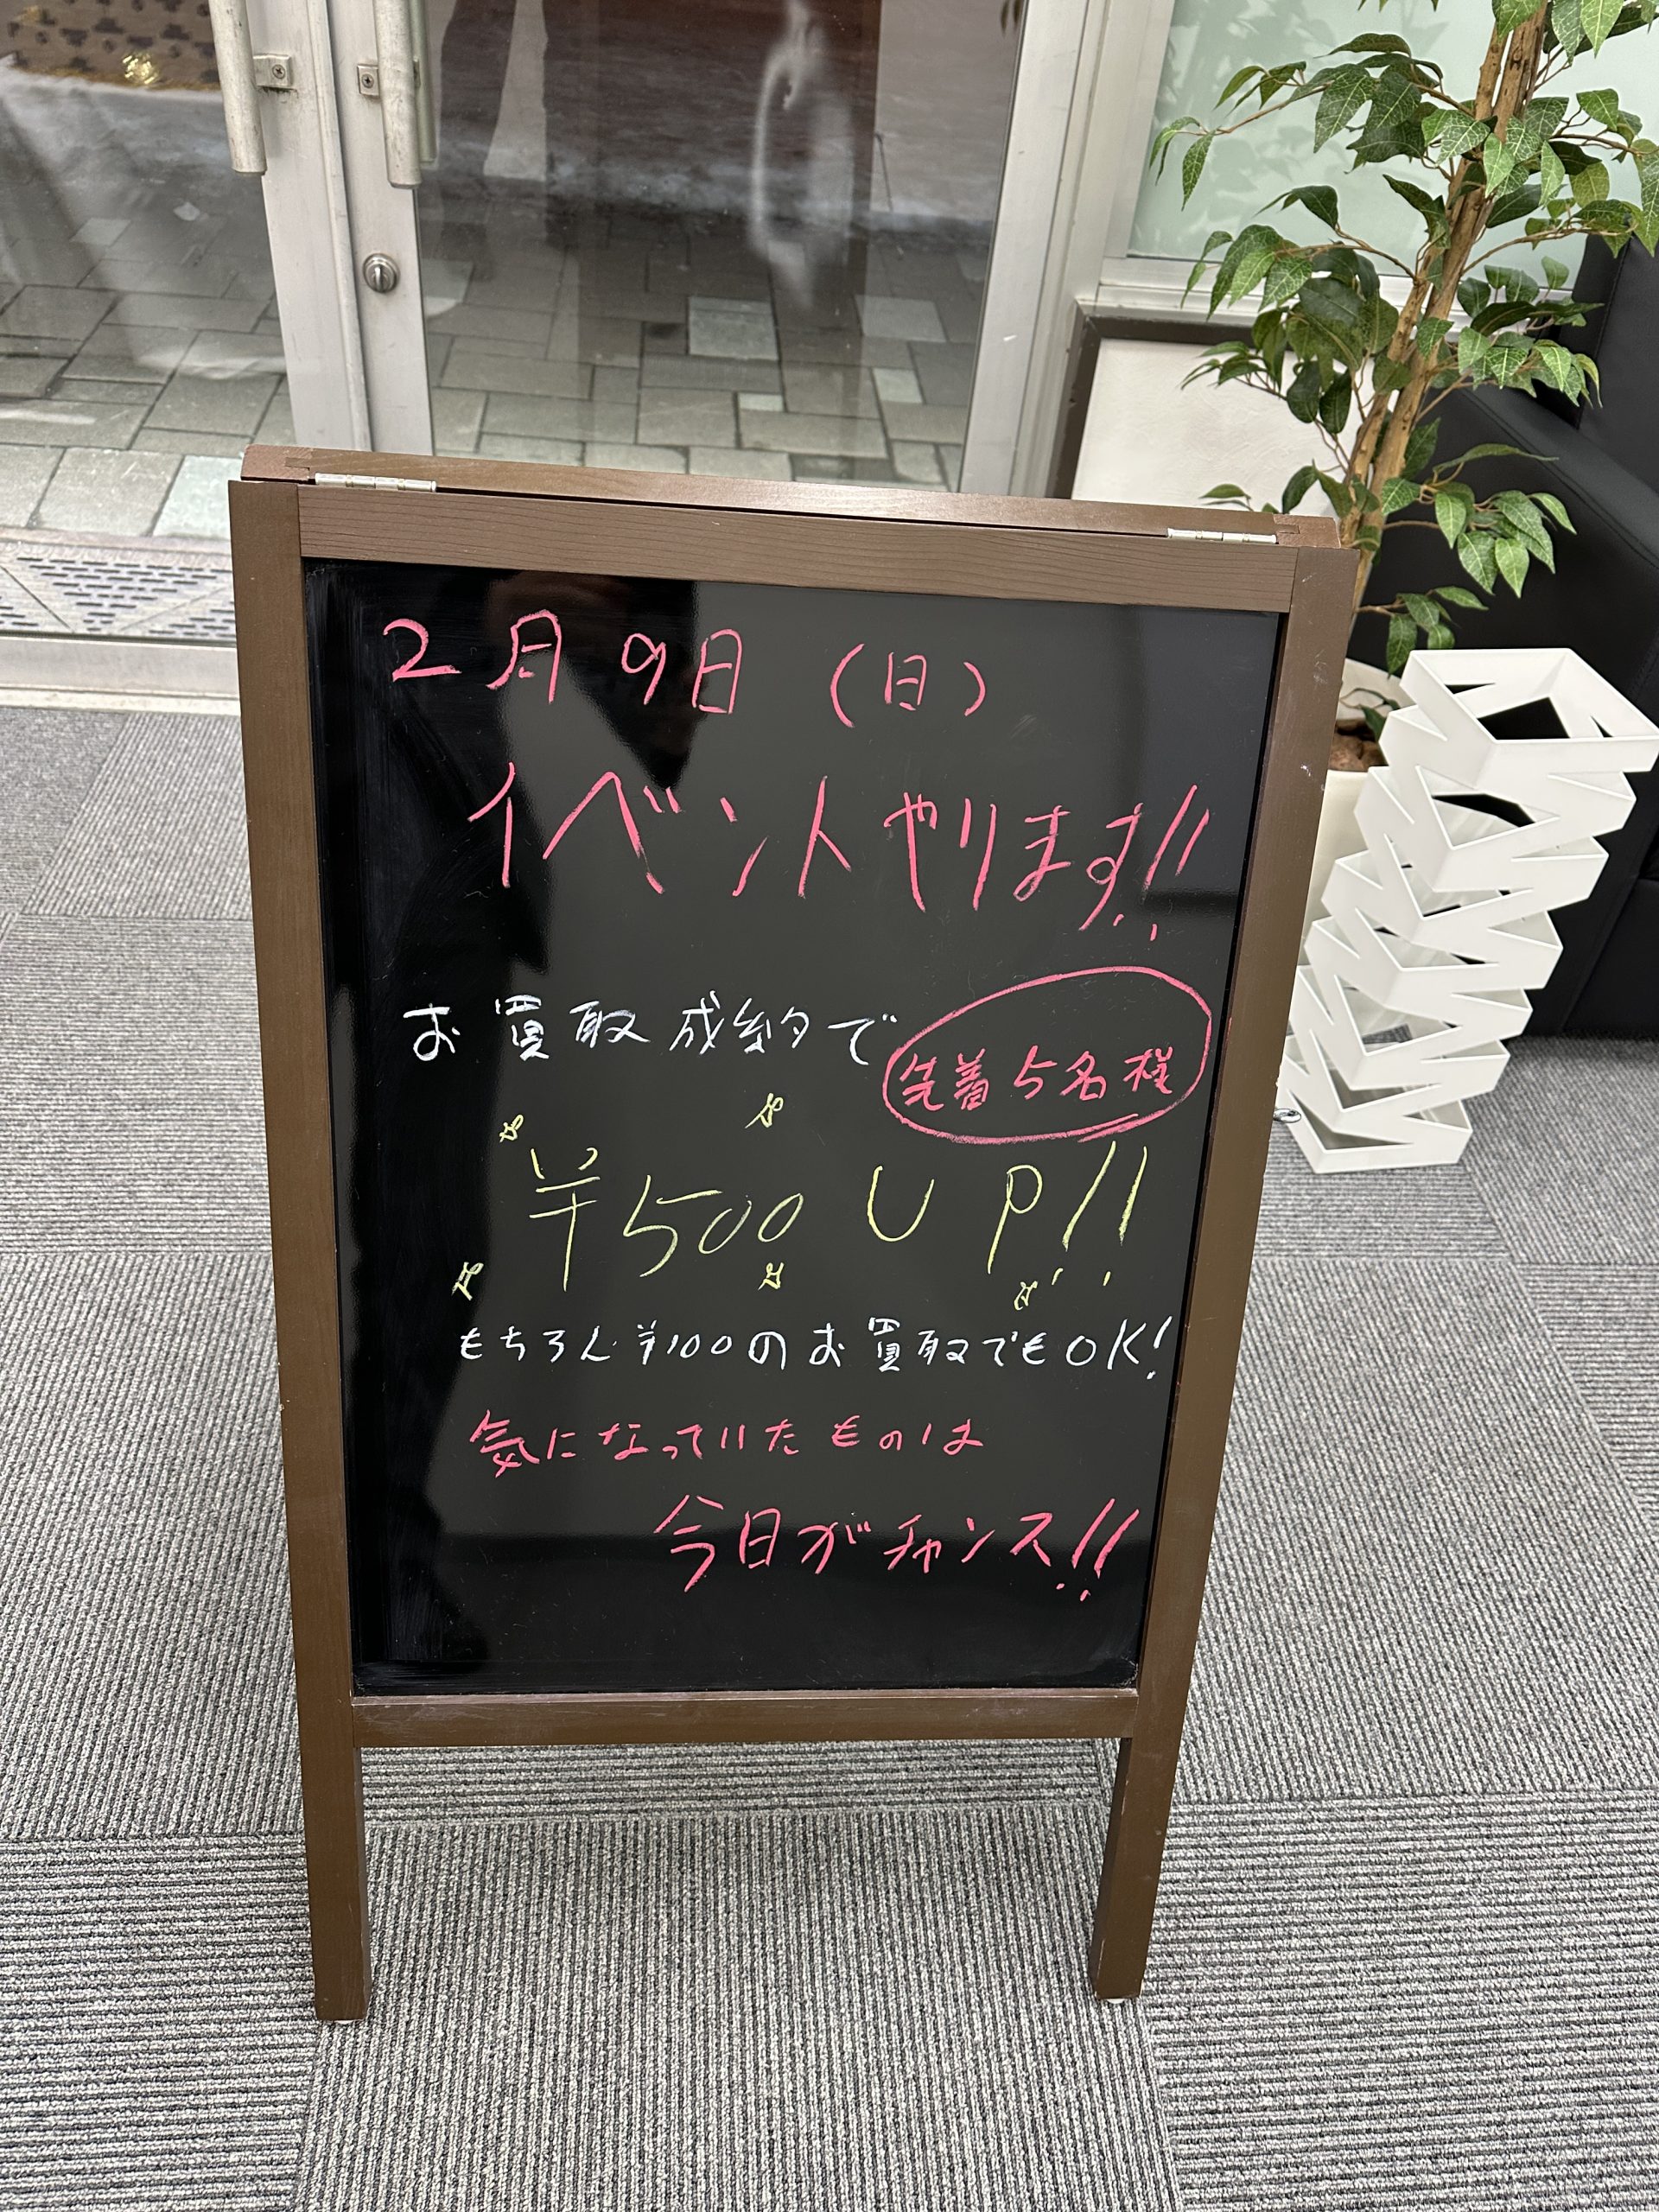 2月9日（日）
イベントやります!!
お買取成約で
先着5名様
¥500 UP!!
もちろん¥100のお買取でもOK!
気になっていたものは
今日がチャンス!!